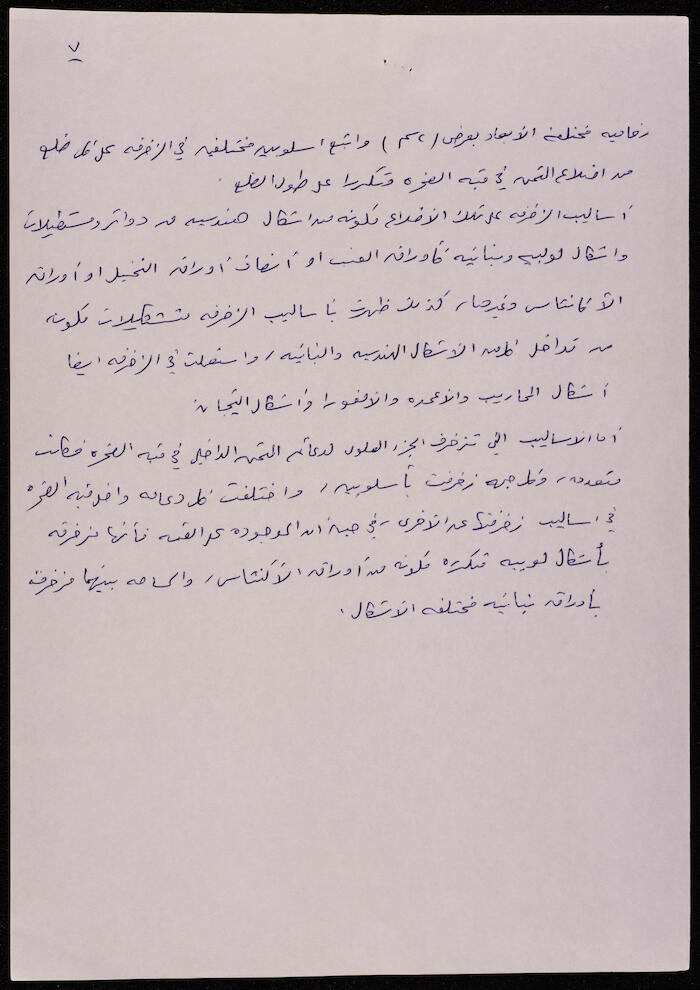 ٧
رخاميه مختلفة الابعاد بعرض ( سم ) واتبع اسلوبين مختلفين في الزخرفه على كل ضلع
من اضلاع التمن في قبه الصخره وتكررا على طول الضلع .
أساليب الزخرفه على تلك الاضلاع مكونه من اشكال هندسيه من دوائر ومستطيلات
واشكال لولبيه ونباتيه كأوراق العنب او أنصاف أوراق النخيل او أوراق
الأكانتاس وغيرها، كذلك ظهرت بأساليب الزخرفه تشكيلات مكونه
من تداخل كل من الاشكال الهندسيه والنباتيه، واستعملت في الزخرفه ايضا
أشكال المحاريب والاعمده والامفورا وأشكال التيجان
أما الاساليب التي تزخرف الجزء العلوي لدعائم التمن الداخلي في قبه الصخره فكانت
متعدده، وكل جهه زخرفت بأسلوبين، واختلفت كل دعامه داخل قبه الصخره
في اساليب زخرفتها عن الاخرى، في حين ان الموجوده على القبه فأنها مزخرفه
بأشكال لولبيه متكرره مكونه من أوراق الأكنتاس، والمساحه بينهما مزخرفه
بأوراق نباتيه مختلفه الاشكال .